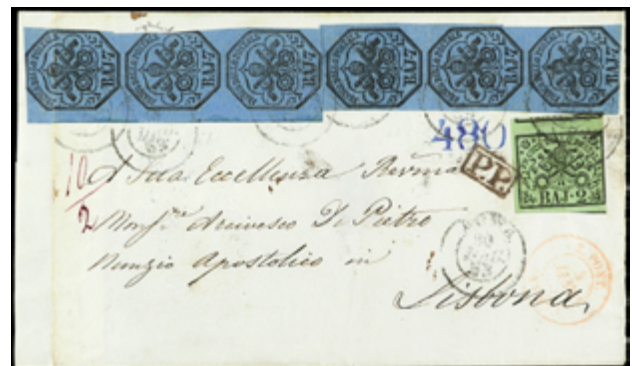 BAJ·7 BAJ·7 BAJ·7 BAJ·7 BAJ·7 BAJ·7
480
P.P.
BAJ·2
10
2
A Sua Eccellenza Revma
Monsre Arcivesco Di Pietro
Nunzio Apostolico in
Lisbona